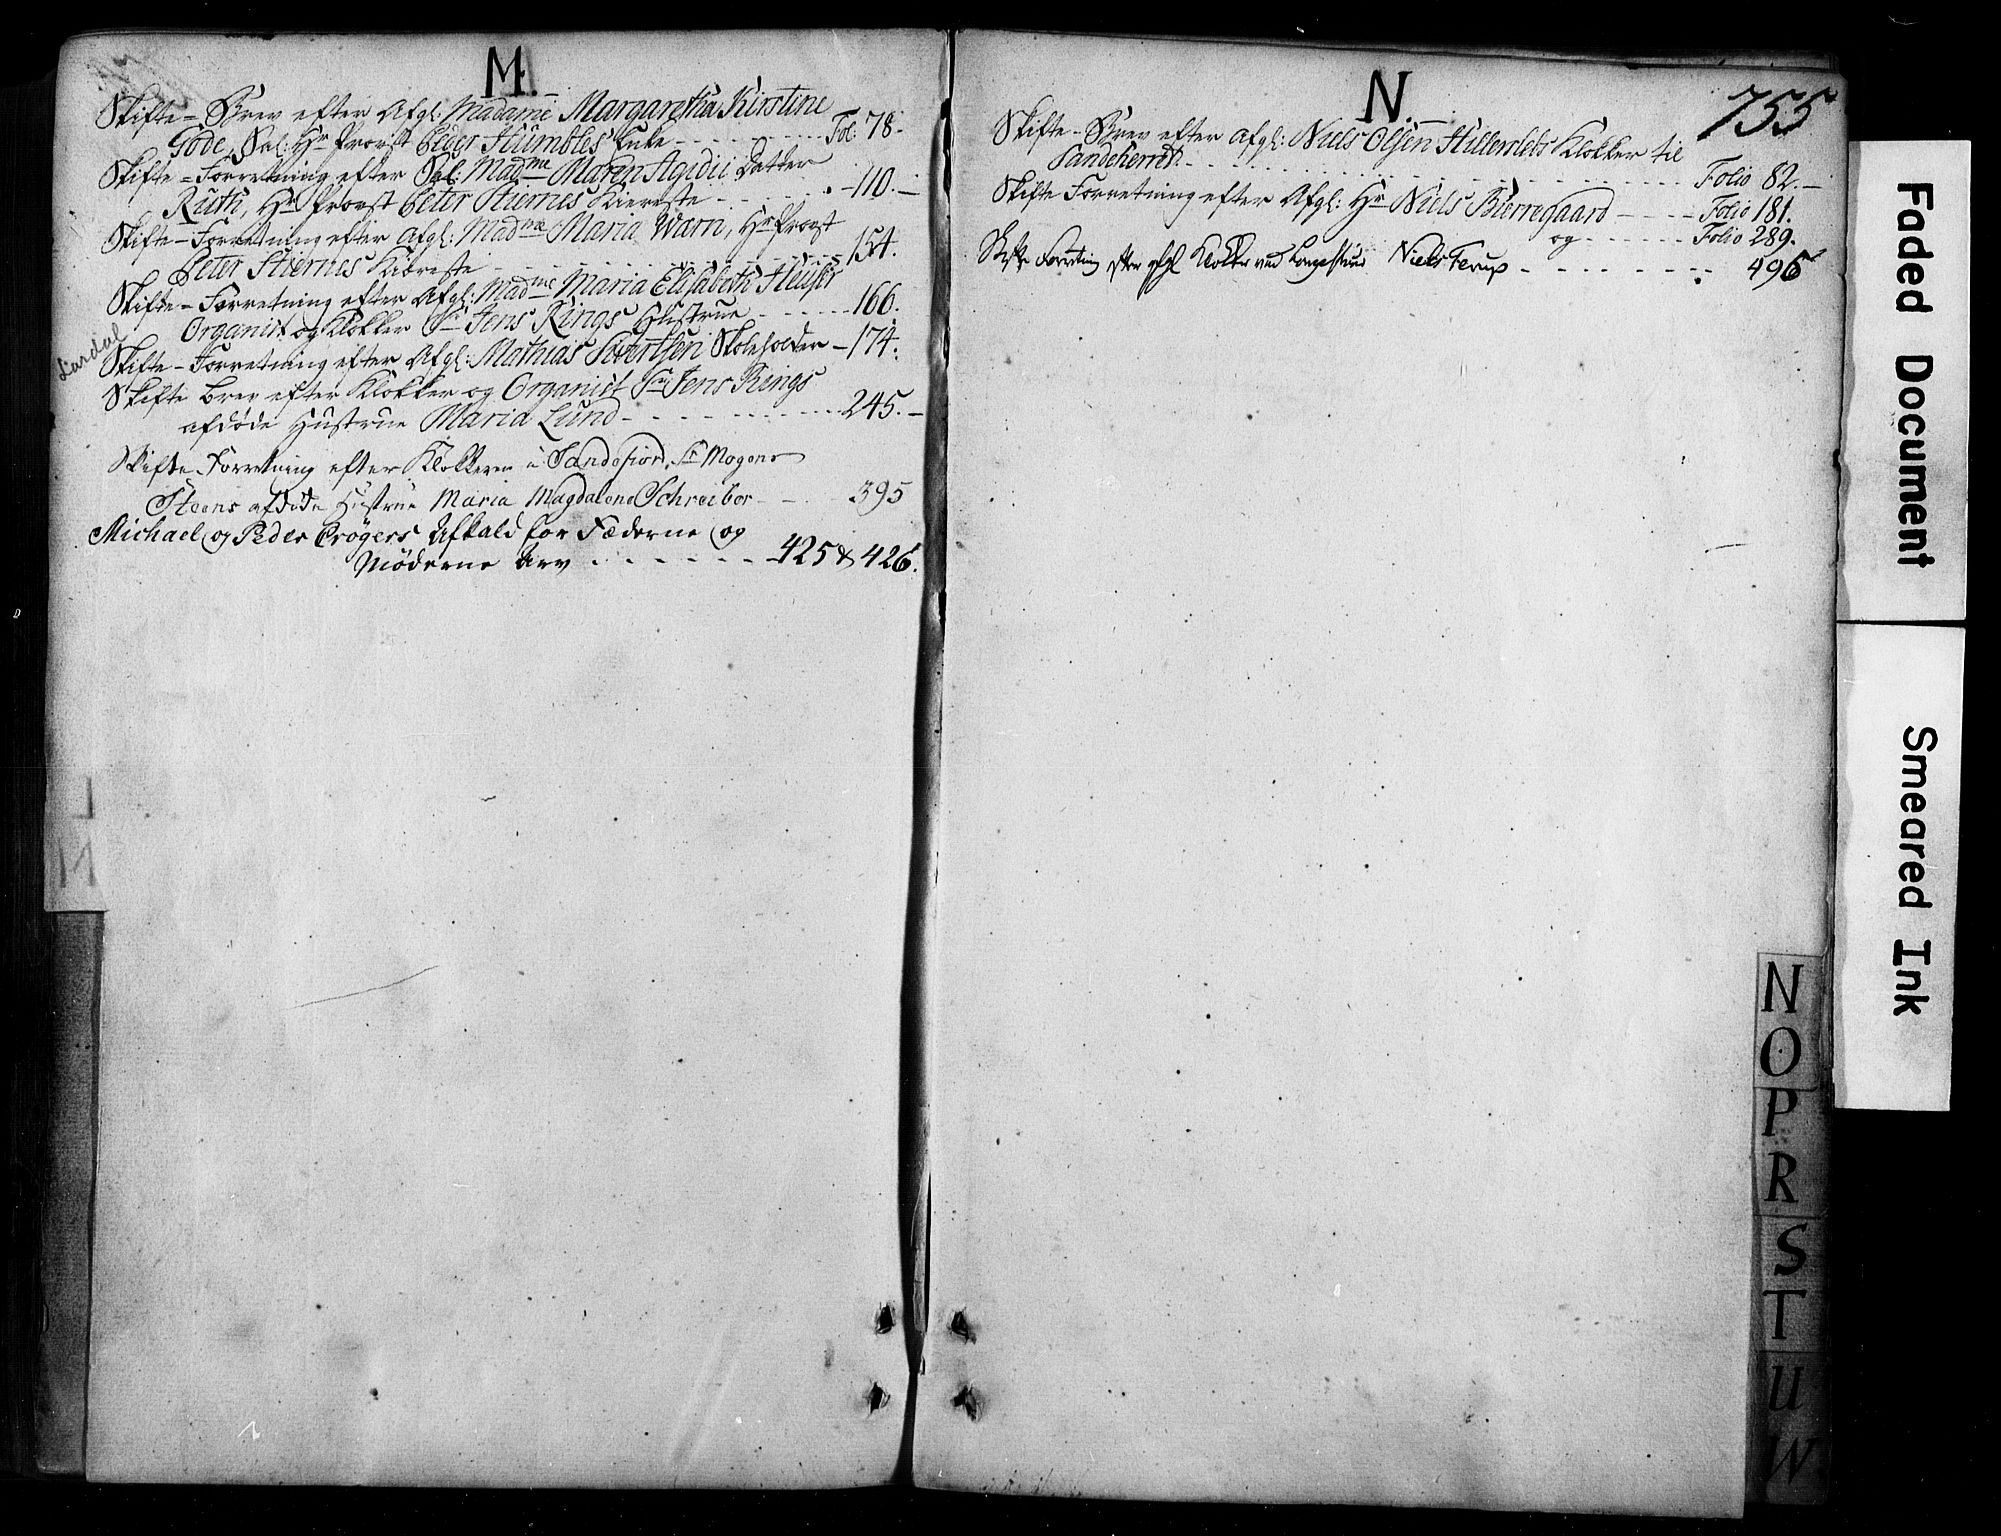 M.
Skifte-Brev efter Afgl: Madame Margaretha Kirstine
Gode, Sal: Hr Provst Peder Humbles Enke - - - - - - Fol: 78.
Skifte-Forretning efter Sal: Madme Maren Agidii Datter
Ruth, Hr Provst Peter Stiernes Kiereste - - - - - - 110.
Skifte-Forretning efter Afgl: Madme Maria Warn, Hr Provst
Peter Stiernes Kiæreste - - - - - - 154.
Skifte-Forretning efter Afgl: Madme Maria Elisabeth Heuser
Organist og Klokker Sr Jens Rings Hustrue - - - - - - 166.
Lardal
Skifte-Forretning efter Afgl: Mathias Sivertsen Skoleholder - 174.
Skifte Brev efter Klokker og Organist Sr Jens Rings
afdøde Hustrue Maria Lund - - - - - - 245.
Skifte Forretning efter Klokkeren i Sandefiord, Sr Mogens
Steens afdøde Hustrue Maria Magdalene Schreiber - - - 395
Michael og Peder Crøgers Afkald for Fæderne og
Møderne Arv - - - - - - 425 & 426.
N.
755
Skifte-Brev efter Afgl: Niels Olsen Hillerslebs Klokker til
Sandeherret - - - - - - Folio 82.
Skifte Forretning efter Afgl: Hr Niels Bierregaard - - - Folio 181.
og - - - - - - Folio 289.
Skifte Forretning efter afgl Klokker ved Langestrand Niels Terup - - - - - - 496
N
O
P
R
S
T
U
W
Faded Document
Smeared Ink